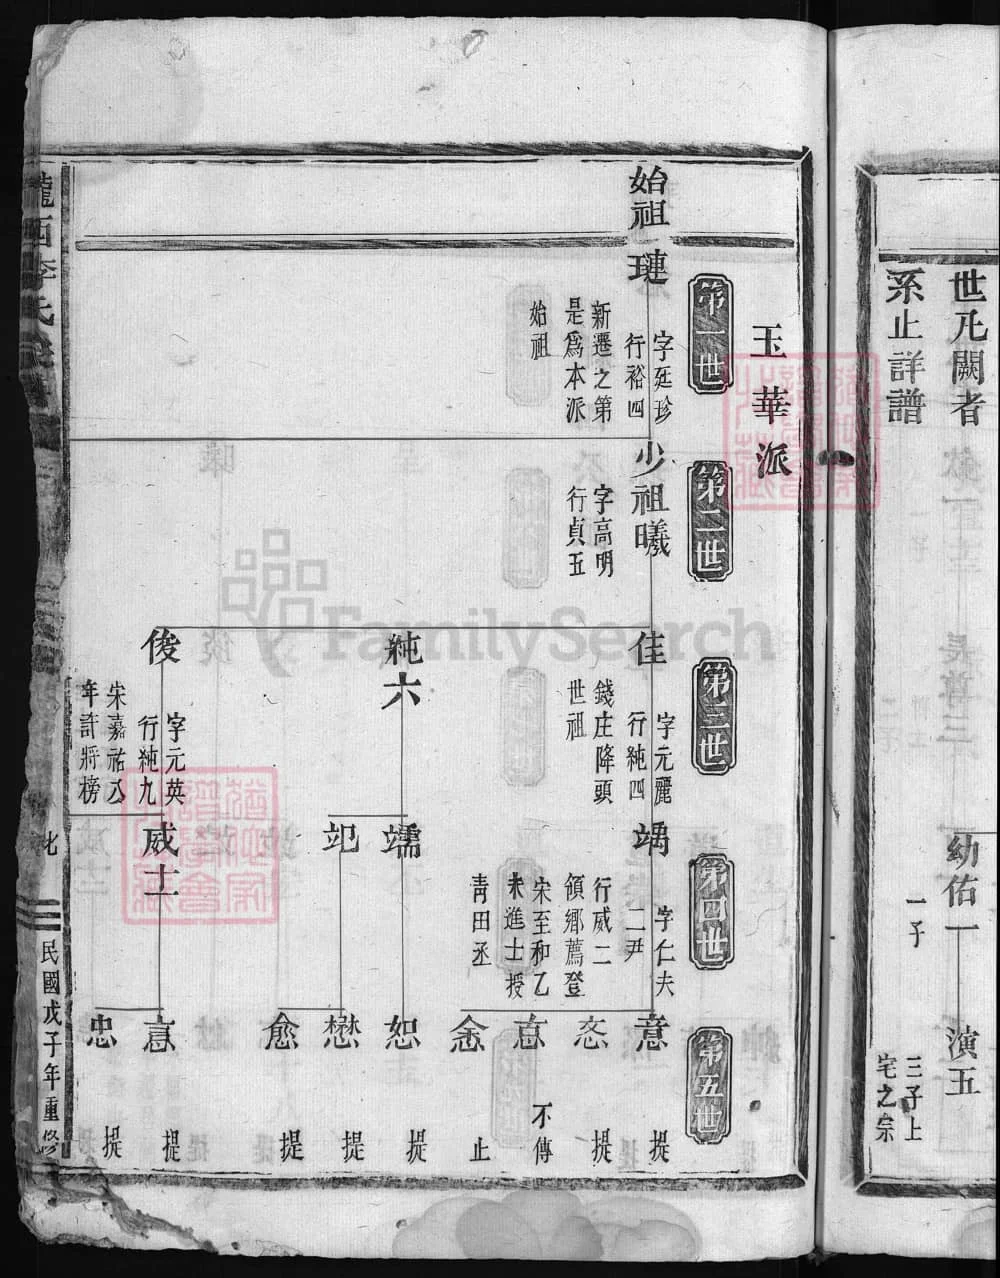 世凡闕者
系止詳譜
幼佑一
一子
演五
三子上
宅之宗
玉華派
第一世
第二世
第三世
第四世
第五世
始祖
璉
字廷珍
行裕四
新遷之第
是爲本派
始祖
少祖曦
字高明
行貞五
佳
字元麗
行純四
錢庄降頭
世祖
純六
俊
字元英
行純九
宋嘉祐公
年許將榜
字仁夫
二尹
行威二
領鄉薦登
宋至和乙
未進士授
青田丞
威士
意
提
提
不傳
止
恕
提
懋
提
愈
提
提
忠
提
隴西李氏
民國戊子年重修
FamilySearch